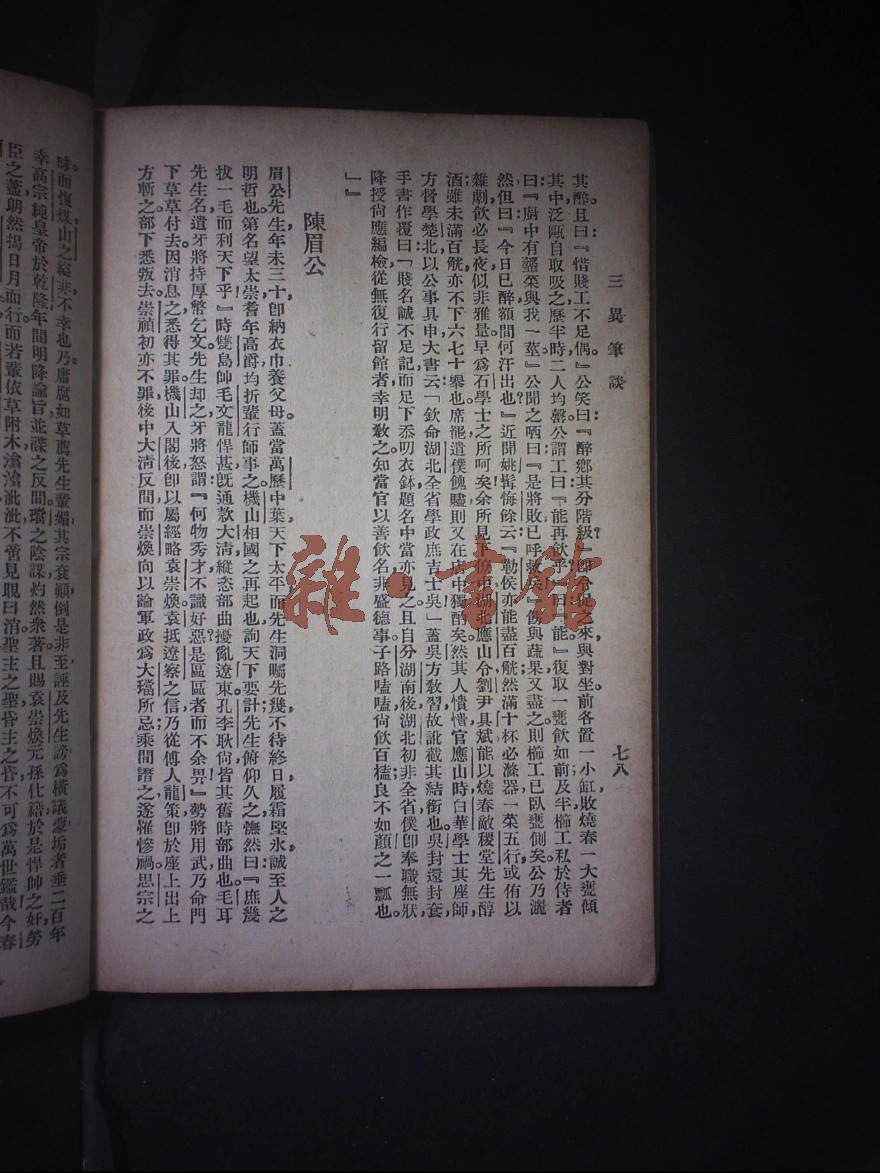 三異筆談
七八
其醉且曰『惜賤工不足偶』公笑曰『醉鄉其分階級？』即令促之來與對坐前各置一小缸敗燒春一大甕傾
其中泛甌自取吸之歷半時二人均罄公謂工曰『能再飲乎』曰『能』復取一甕飲如前及半櫛工私於侍者
曰『廚中有虀菜與我一莖』公聞之哂曰『是將敗已呼救矣』傍與蔬果又盡之則櫛工已臥甕側矣公乃灑
然但曰『今日已醉額間何汗出也』近聞姚䯻悔餘云『勒侯亦能盡百觥然滿十杯必滌器一菜五行或侑以
雜劇飲必長夜似非雅量早爲石學士之所呵矣余所見下僚中湖北應山令劉尹具斌能以燒春敵稷堂先生醇
酒雖未滿百觥亦不下六七十舉也席罷遣僕餽贐則又在店中獨酌矣然其人憒憒官應山時白華學士其座師
方督學楚北以公事具申大書云「欽命湖北全省學政庶吉士吳」蓋吳方教習故訛截其結銜也吳封還封套
手書作覆曰『賤名誠不足記而足下忝叨衣鉢題名中當亦見之且自分湖南後湖北初非全省僕卽奉職無狀
降授尙應編檢從無復行留館者幸明敎之知當官以善飲名非盛德事子路嗑嗑尙飲百榼良不如顏之一瓢也
」』
陳眉公
眉公先生年未三十卽納衣巾養父母蓋當萬曆中葉天下太平而先生洞矚先幾不待終日履霜堅氷誠至人之
明哲也第名望太崇耆年高爵均折輩行師事之機山相國之再起也詢天下要計先生俯仰久之憮然曰『庶幾
拔一毛而利天下乎』時雙島帥毛文龍悍甚旣通款大淸縱恣部曲擾亂遼東孔李耿尙皆其舊時部曲也毛耳
先生名遣牙將持厚幣乞文先生却之牙將怒謂『何物秀才不識好惡是區區者而不余畀』勢將用武乃命門
下草草付去因消息之悉得其罪機山入閣後卽以屬經略袁崇煥袁抵遼察之信乃從傅人龍策卽於座上出上
方斬之部下悉叛去崇禎初亦不罪後中大淸反間而崇煥向以論軍政爲大璫所忌乘間譖之遂罹慘禍思宗之
昧而復煤山之縊非不幸也乃庸腐如草薦先生輩媚其宗袞顚倒是非至誣及先生謗爲橫議蒙垢者垂二百年
幸高宗純皇帝於乾隆年間明降諭旨並諜之反間璫之陰謀灼然衆著且賜袁崇煥元孫化籍於是悍帥之奸勞
臣之藎朗然揭日月而行而若輩依草附木滄滄泚泚不啻見晛曰消聖主之聖昏主之昏不可爲萬世鑑哉今春